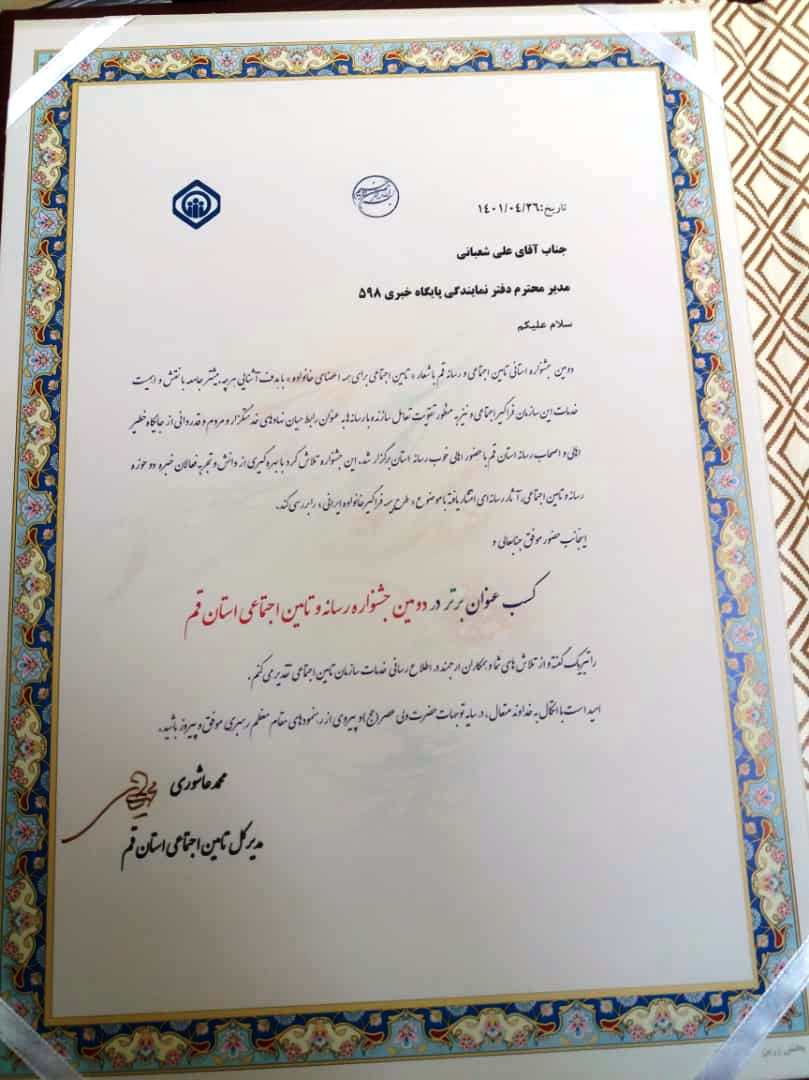 تاریخ: ۱۴۰۱/۰۴/۲۶
جناب آقای علی شعبانی
مدیر محترم دفتر نمایندگی پایگاه خبری ۵۹۸
سلام علیکم
دومین جشنواره استانی تامین اجتماعی و رسانه قم با شعار « تامین اجتماعی برای همه اعضای خانواده » با هدف آشنایی هرچه بیشتر جامعه با نقش و اهمیت
خدمات این سازمان فراگیر اجتماعی و نیز به منظور تقویت تعامل سازنده با رسانه ها به عنوان رابط میان نهادهای خدمتگزار و مردم و قدردانی از جایگاه خطیر
اهالی و اصحاب رسانه استان قم با حضور اهالی خوب رسانه استان برگزار شد. این جشنواره تلاش کرد با بهره گیری از دانش و تجربه فعالان خبره دو حوزه
رسانه و تامین اجتماعی، آثار رسانه ای انتشار یافته با موضوع « طرح بیمه فراگیر خانواده ایرانی » را بررسی کند.
اینجانب حضور موفق جنابعالی و
کسب عنوان برتر در دومین جشنواره رسانه و تامین اجتماعی استان قم
را تبریک گفته و از تلاش های شما و همکاران ارجمند در اطلاع رسانی خدمات سازمان تامین اجتماعی تقدیر می کنم.
امید است با اتکال به خداوند متعال، در سایه توجهات حضرت ولی عصر (عج) و پیروی از رهنمودهای مقام معظم رهبری موفق و پیروز باشید.
محمد عاشوری
مدیر کل تامین اجتماعی استان قم